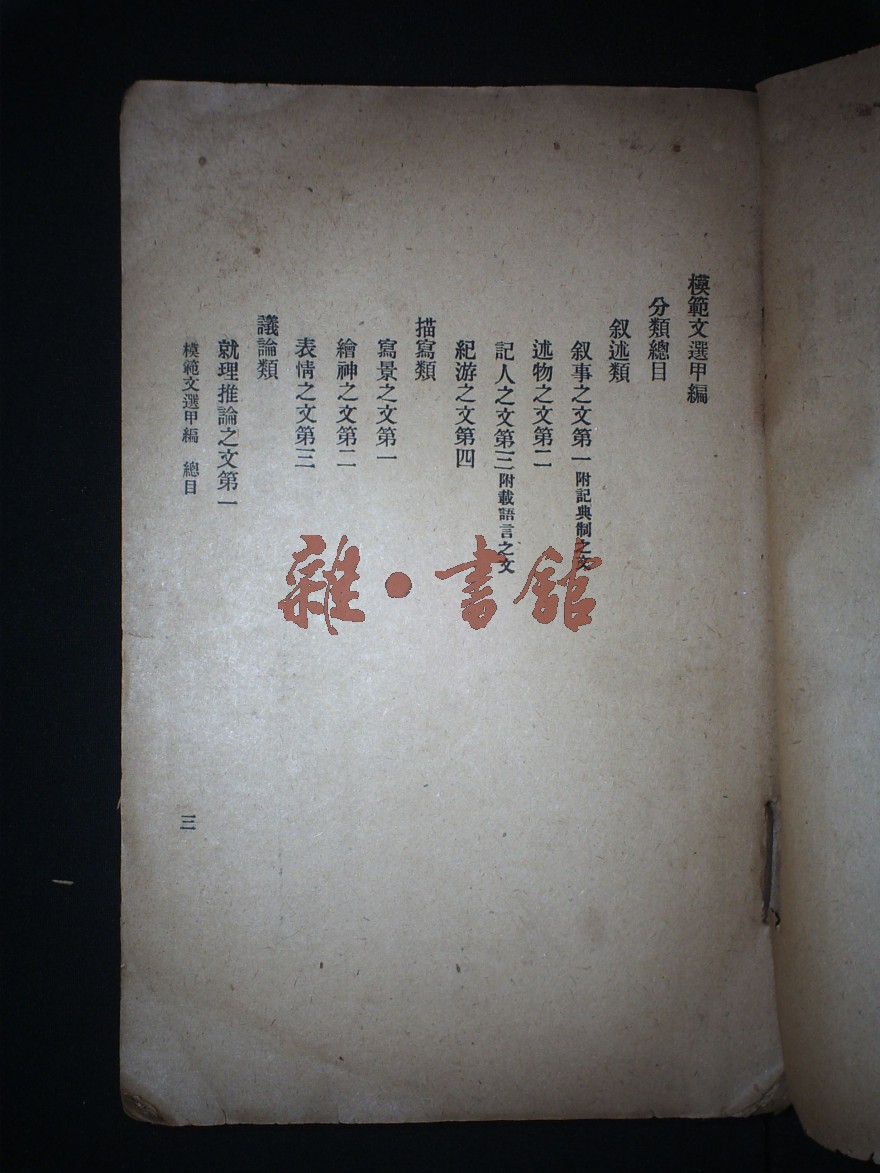 模範文選甲編
分類總目
叙述類
叙事之文第一附記典制之文
述物之文第二
記人之文第三附載語言之文
紀游之文第四
描寫類
寫景之文第一
繪神之文第二
表情之文第三
議論類
就理推論之文第一
模範文選甲編 總目
三
雜·書館